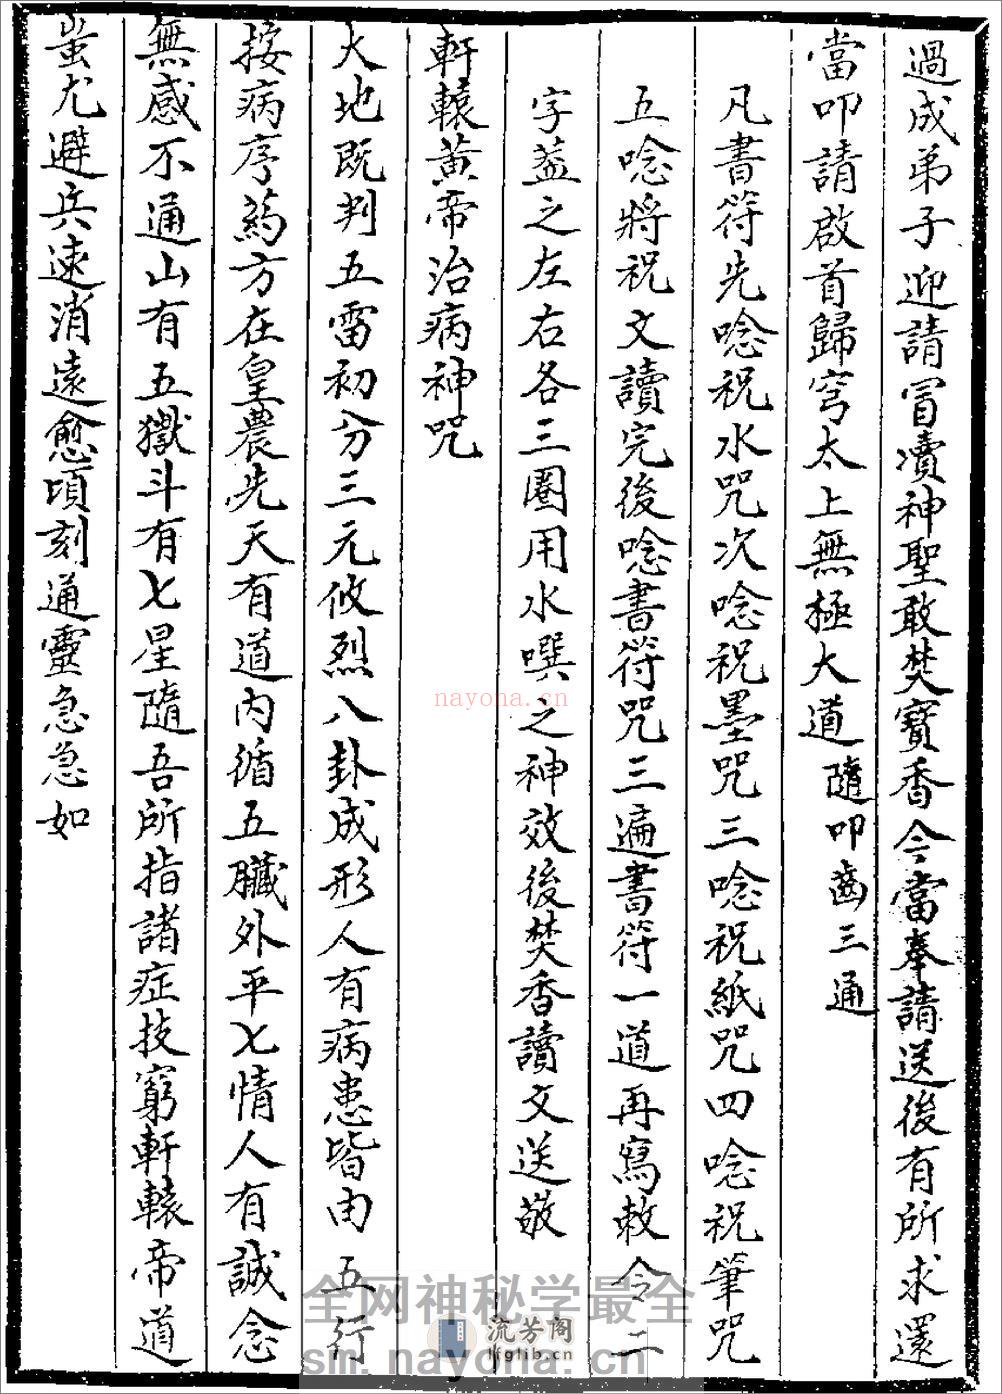 過成弟子迎請冒凟神聖敢焚寶香今當奉請送後有所求還
當叩請啟首歸穹太上無極大道隨叩齒三通
凡書符先唸祝水咒次唸祝墨咒三唸祝紙咒四唸祝筆咒
五唸將祝文讀完後唸書符咒三遍書符一道再寫敕令二
字蓋之左右各三圈用水噀之神效後焚香讀文送敬
軒轅黃帝治病神咒
大地既判五雷初分三元攸烈八卦成形人有病患皆由五行
按病序葯方在皇農先天有道内循五臟外平七情人有誠念
無感不通山有五獄斗有七星隨吾所指諸症技窮軒轅帝道
蚩尤避兵速消遠愈頃刻通靈急急如
nayona.cn
全网神秘学最全
流芳阁
lfglib.cn
sm.nayona.cn